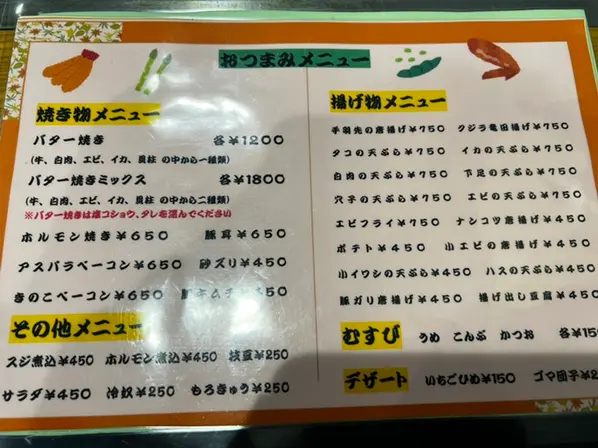 おつまみメニュー
焼き物メニュー
バター焼き 各¥1200
(牛、白肉、エビ、イカ、貝柱 の中から一種類)
バター焼きミックス 各¥1800
(牛、白肉、エビ、イカ、貝柱 の中から二種類)
※バター焼きは塩コショウ、タレを選んでください
ホルモン焼き¥650 豚耳¥650
アスパラベーコン¥650 砂ズリ¥450
きのこベーコン¥650 豚キムチ
その他メニュー
スジ煮込¥450 ホルモン煮込¥450 枝豆¥250
サラダ¥450 冷奴¥250 もろきゅう¥250
揚げ物メニュー
手羽先の唐揚げ¥750 クジラ竜田揚げ¥750
タコの天ぷら¥750 イカの天ぷら¥750
白肉の天ぷら¥750 下足の天ぷら¥750
穴子の天ぷら¥750 エビの天ぷら¥750
エビフライ¥750 ナンコツ唐揚げ¥450
ポテト¥450 小エビの唐揚げ¥450
小イワシの天ぷら¥450 ハスの天ぷら¥450
豚ガリ唐揚げ¥450 揚げ出し豆腐¥450
むすび うめ こんぶ かつお 各¥150
デザート いちごひめ¥150 ゴマ団子